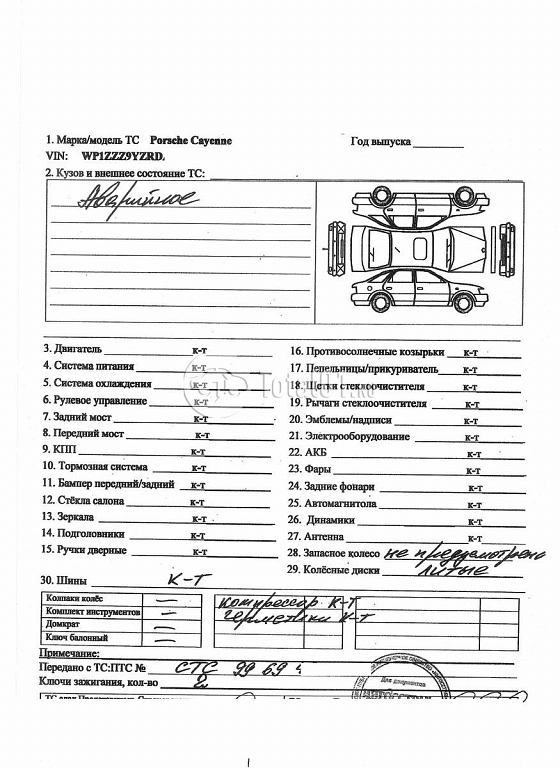 1. Марка/модель ТС Porsche Cayenne Год выпуска
VIN: WP1ZZZ9YZRD.
2. Кузов и внешнее состояние ТС:
Аварийное
3. Двигатель к-т
4. Система питания к-т
5. Система охлаждения к-т
6. Рулевое управление к-т
7. Задний мост к-т
8. Передний мост к-т
9. КПП к-т
10. Тормозная система к-т
11. Бампер передний/задний к-т
12. Стёкла салона к-т
13. Зеркала к-т
14. Подголовники к-т
15. Ручки дверные к-т
16. Противосолнечные козырьки к-т
17. Пепельницы/прикуриватель к-т
18. Щетки стеклоочистителя к-т
19. Рычаги стеклоочистителя к-т
20. Эмблемы/надписи к-т
21. Электрооборудование к-т
22. АКБ к-т
23. Фары к-т
24. Задние фонари к-т
25. Автомагнитола к-т
26. Динамики к-т
27. Антенна к-т
28. Запасное колесо не предусмотрено
29. Колёсные диски литые
30. Шины К-Т
Колпаки колёс —
Комплект инструментов —
Домкрат —
Ключ балонный —
компрессор К-Т
герметики К-Т
Примечание:
Передано с ТС:ПТС № СТС 99 69
Ключи зажигания, кол-во 2
Для документов